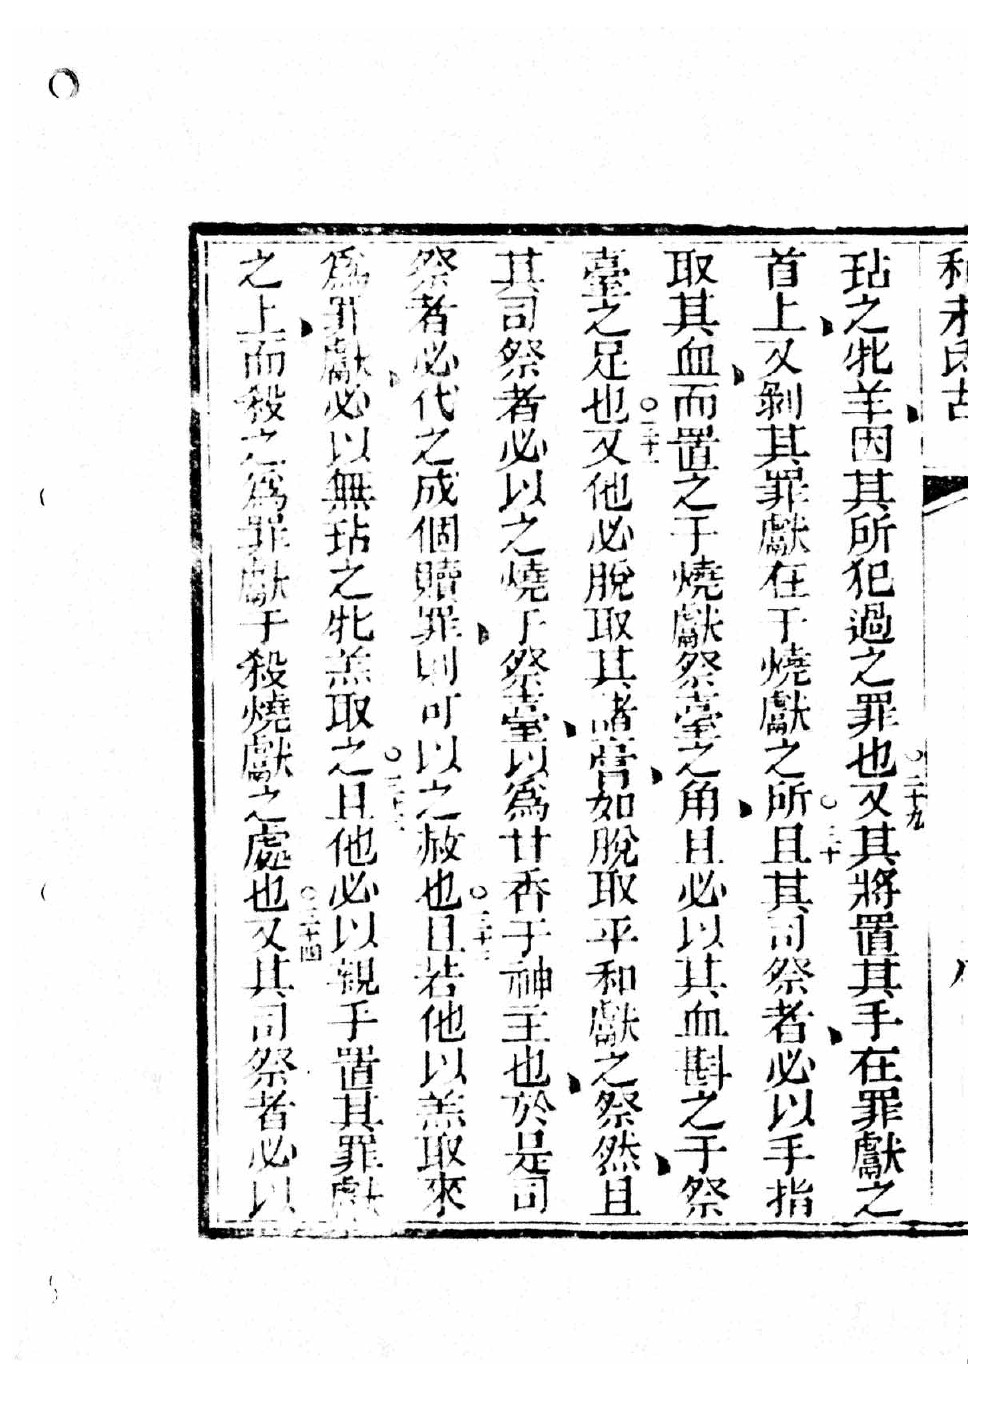 利未氏古
玷之牝羊因其所犯過之罪也○二十九又其將置其手在罪獻之
首上又剝其罪獻在于燒獻之所○三十且其司祭者必以手指
取其血而置之于燒獻祭臺之角且必以其血斟之于祭
臺之足也○三十一又他必脫取其諸膏如脫取平和獻之祭然且
其司祭者必以之燒于祭臺以為廿香于神主也於是司
祭者必代之成個贖罪則可以之赦也○三十二且若他以羔取來
為罪獻必以無玷之牝羔取之○三十三且他必以親手置其罪獻
之上而殺之為罪獻于殺燒獻之處也○三十四又其司祭者必以